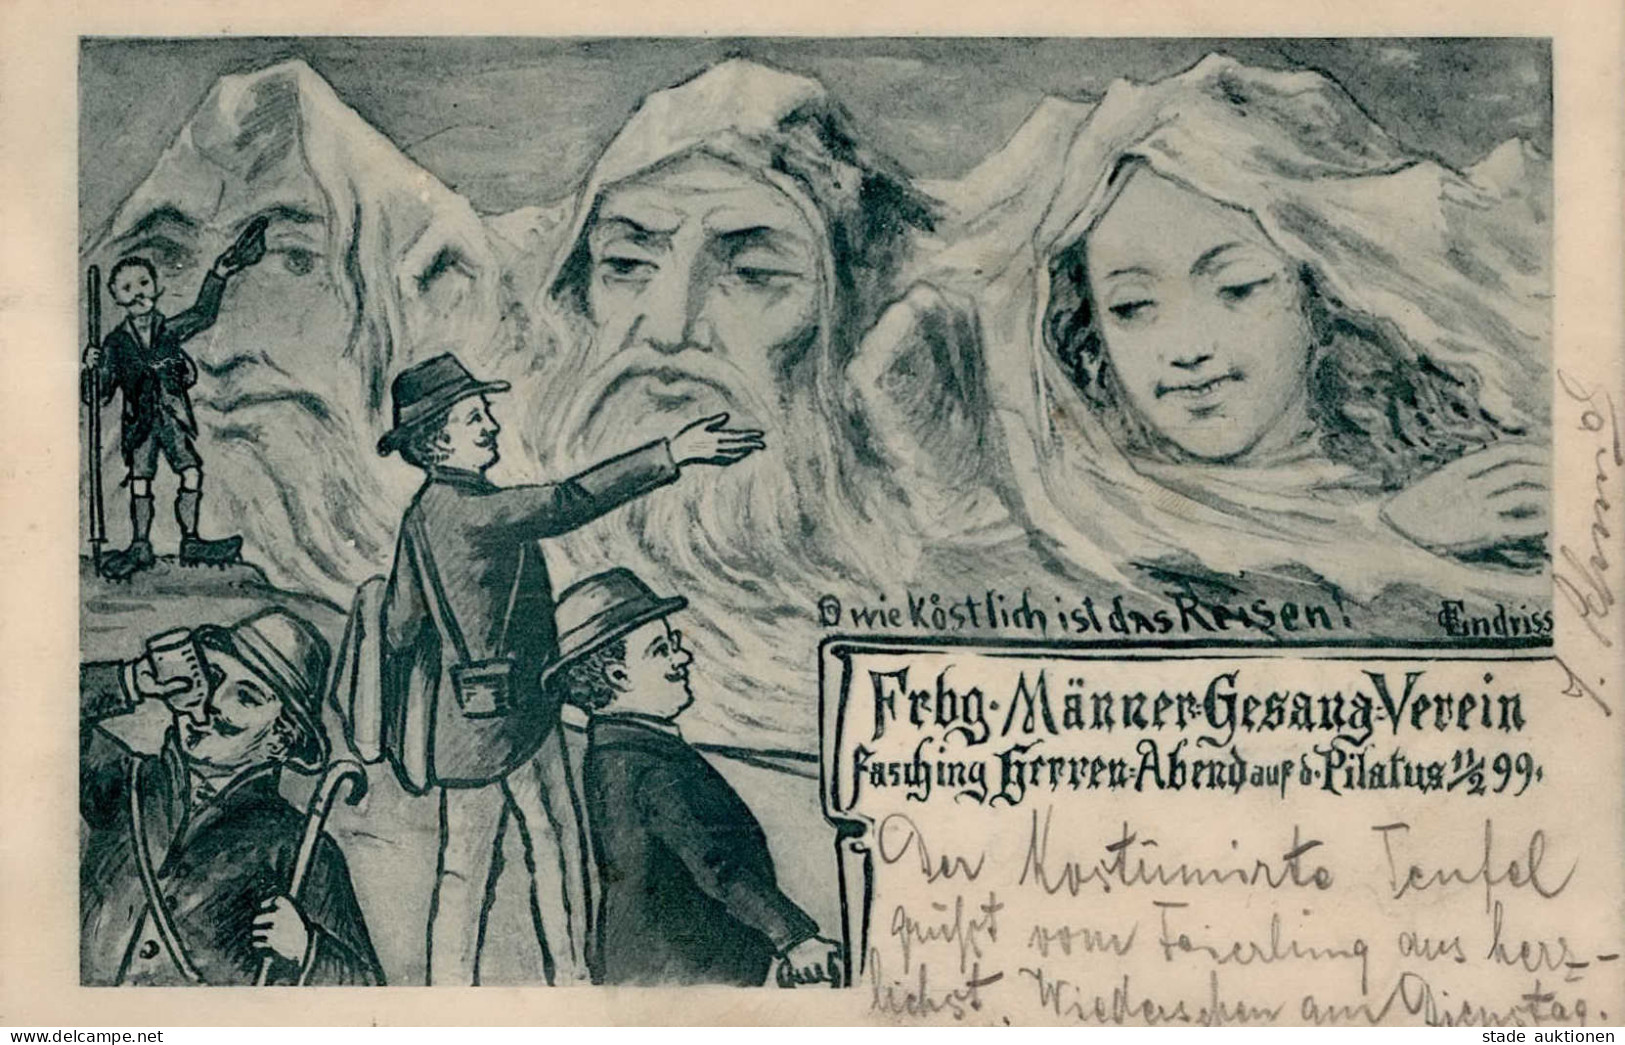 O wie köstlich ist das Reisen!
Endriss
Frbg. Männer-Gesang-Verein
Fasching Herren-Abend auf d. Pilatus 11/2 99.
Der Kostümirte Teufel
grüßt vom Feierling aus herz-
lichst. Wiedersehen am Dienstag.
stade auktionen